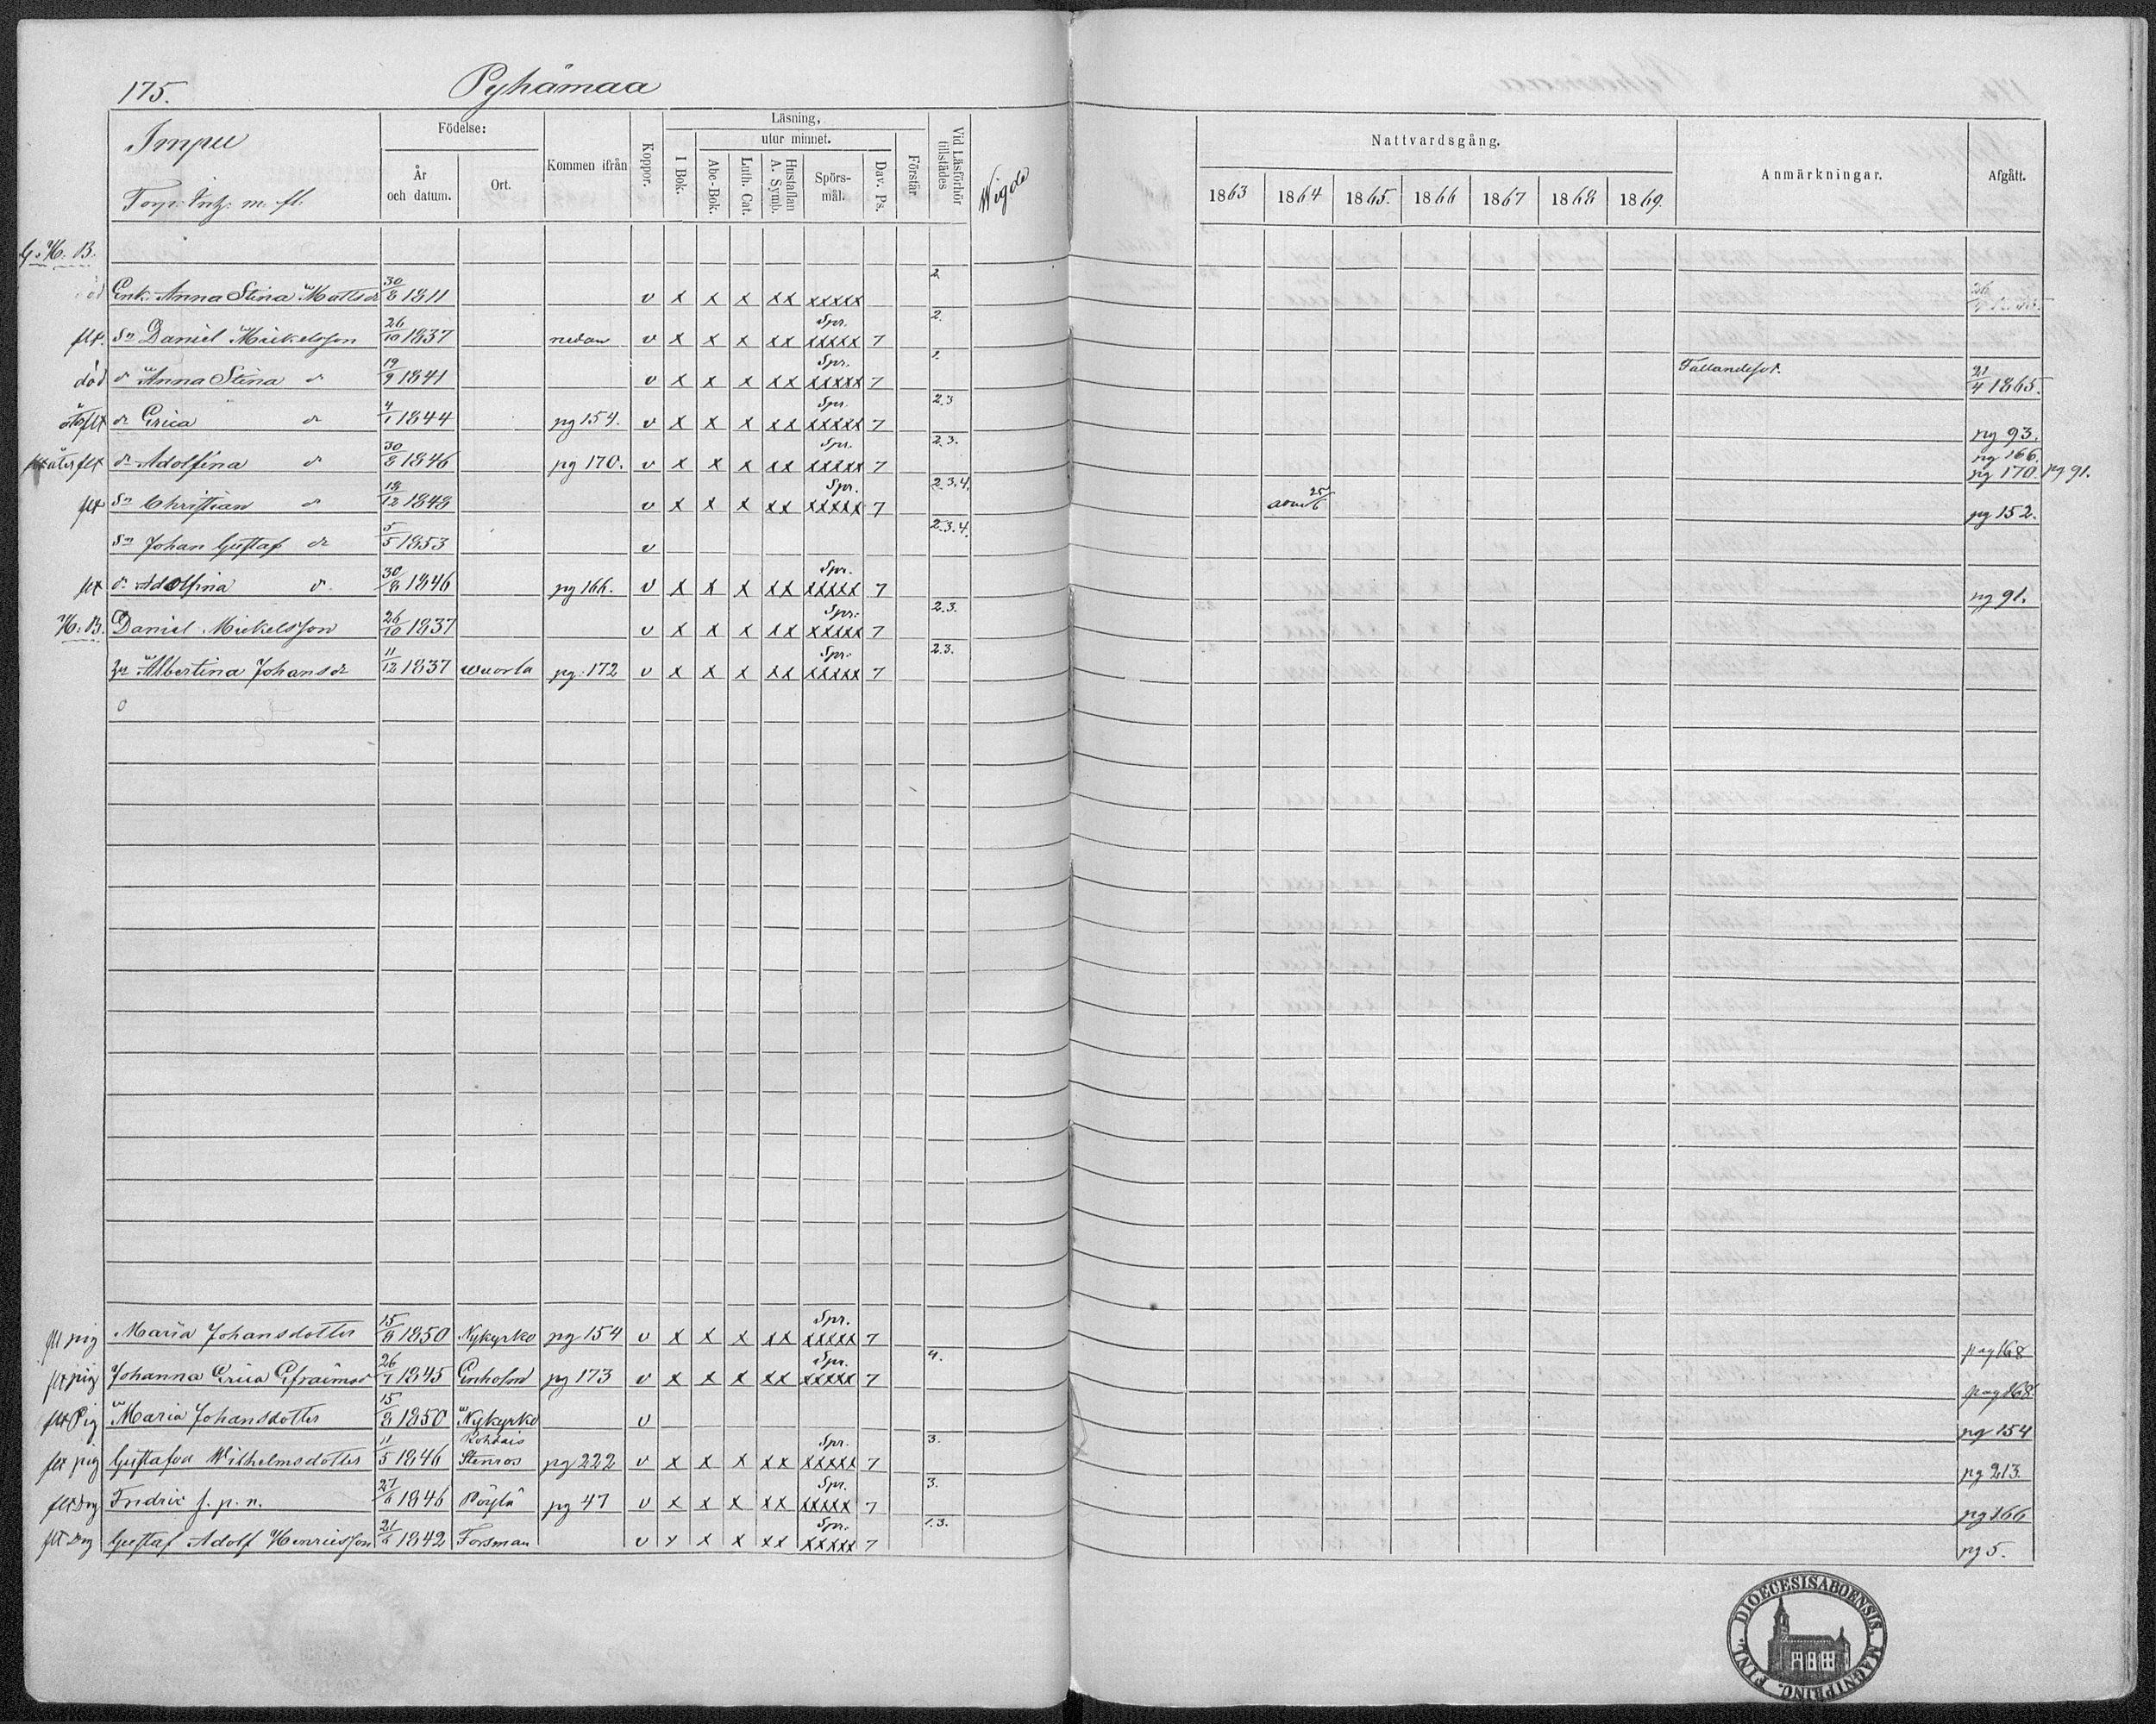 175. Pyhämaa
Impu
Födelse: År och datum. Ort. Kommen ifrån Koppor. Läsning, I Bok. utur minnet. Abc-Bok. Luth. Cat. Hustaflan A. Symb. Spörsmål. Dav. Ps. Förstår Vid Läsförhör tillstädes Wigde
Nattvardsgång. 1863 1864 1865. 1866 1867 1868 1869. Anmärkningar. Afgått.
m. fl.
H: B.
Enk. Anna Stina Matlsdr 30/8 1811 v x x x xx xxxxx 2
flt. Sn Daniel Mickelsson 26/10 1837 nedan v x x x xx xxxxx Spr. 7 2.
död dr Anna Stina dr 19/9 1841 v x x x xx xxxxx Spr. 7 Fallandesot. 21/4 1865.
flt dr Erica dr 4/1 1844 pg 154. v x x x xx xxxxx Spr. 7 2.3 pg 93.
flt åter flt dr Adolfina dr 30/8 1846 pg 170. v x x x xx xxxxx Spr. 7 2.3. pg 166. pg 170. pg 91.
flt Sn Christian dr 18/12 1848 v x x x xx xxxxx Spr. 7 2.3.4. 25/6 pg 152.
Sn Johan Gustaf dr 5/5 1853 v 2.3.4.
flt dr Adolfina dr 30/8 1846 pg 166. v x x x xx xxxxx Spr. 7 pg 91.
H: B. Daniel Mickelsson 26/10 1837 v x x x xx xxxxx Spr. 7 2.3.
Albertina Johansdr 11/12 1837 wuorla pg. 172 v x x x xx xxxxx Spr. 7 2.3.
flt pig Maria Johansdotter 15/8 1850 Nykyrko pg 154 v x x x xx xxxxx Spr. 7 pag 168
flt pig Johanna Erica Efraimsd 26/1 1845 pg 173 v x x x xx xxxxx Spr. 7 4. pag 168.
flt Pig Maria Johansdotter 15/8 1850 Nykyrko v pg 154
flt pig Gustafva Wilhelmsdotter 11/5 1846 Stenros pg 222 v x x x xx xxxxx Spr. 7 3. pg 213.
flt Dng Fredric f. p. n. 27/6 1846 pg 47 v x x x xx xxxxx Spr. 7 3. pg 166
flt Dng Gustaf Adolf Henricsson 21/6 1842 Forsman v x x x xx xxxxx Spr. 7 1.3. pg 5.
FINL. DIOECESIS ABOENSIS. MAGNI PRINC.